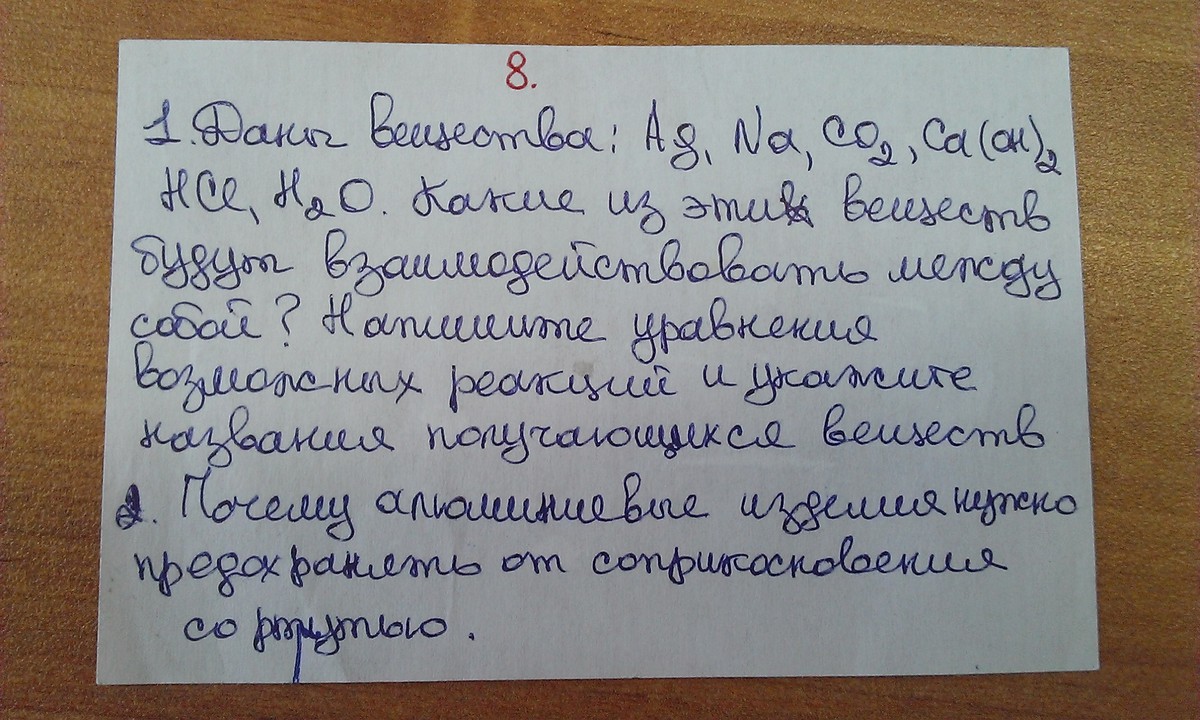 8.
1. Даны вещества: Ag, Na, CO₂, Ca(OH)₂
HCl, H₂O. Какие из этих веществ
будут взаимодействовать между
собой? Напишите уравнения
возможных реакций и укажите
названия получающихся веществ
2. Почему алюминиевые изделия нужно
предохранять от соприкосновения
со ртутью.